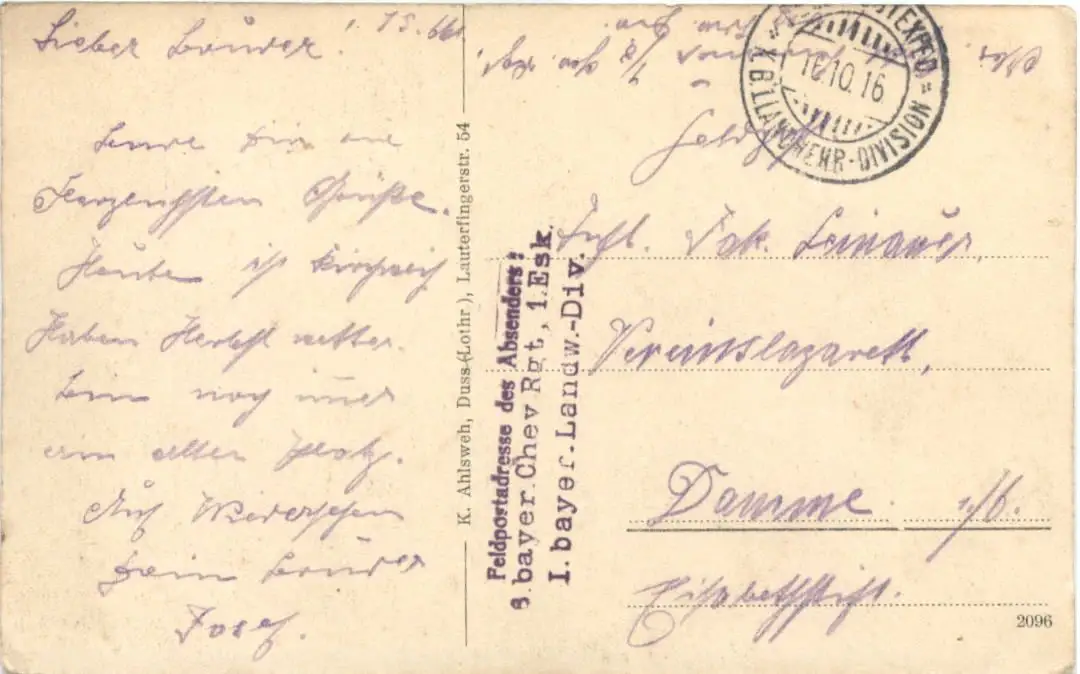 Lieber Bruder! 15. Okt.
Sende Dir die
herzlichsten Grüße.
Heute ist Kirchweih
Haben Herbstwetter.
Bin noch immer
am alten Platz.
Auf Wiedersehen
Dein Bruder
Josef.
K. Ahlsweh, Duss (Lothr.), Lauterfingerstr. 54
Feldpostadresse des Absenders:
8. bayer. Chev Rgt, 1. Esk.
I. bayer. Landw.-Div.
POSTEXPED.
K.B.1.LANDWEHR-DIVISION
16.10.16
Feldpost
Vereinslazarett,
Damme i/O.
Elisabethstift.
2096